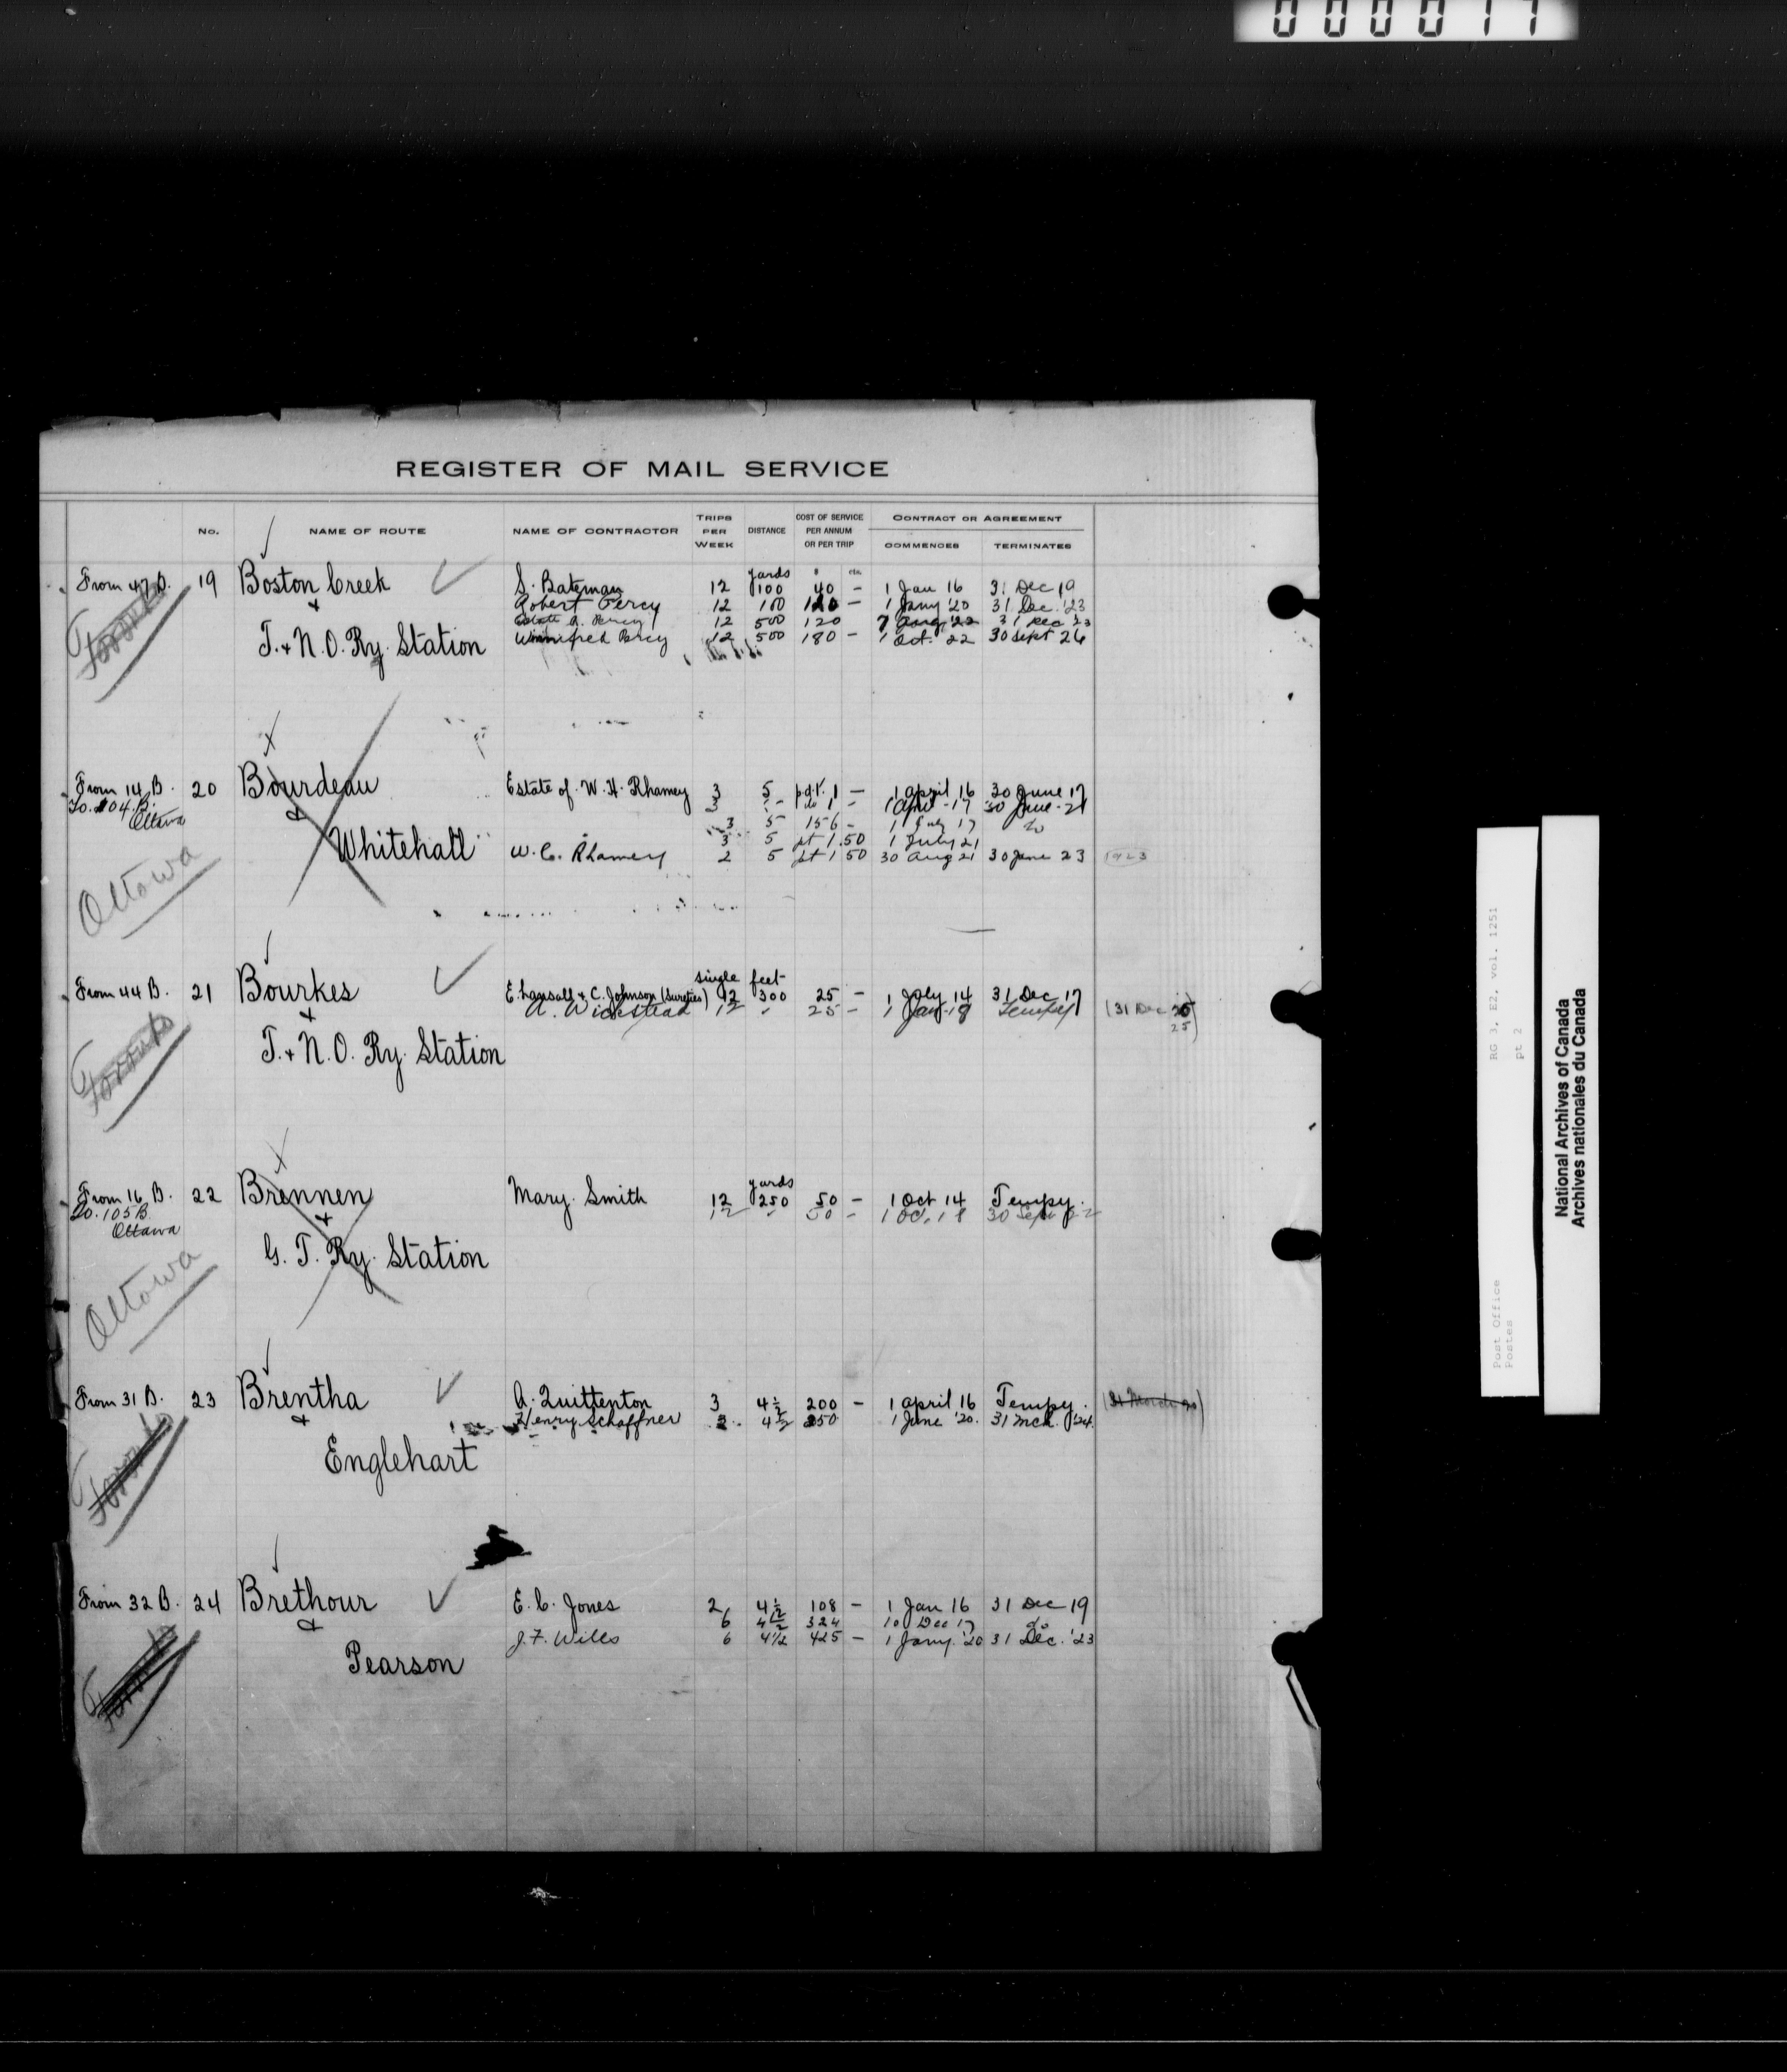 000017
REGISTER OF MAIL SERVICE
No. NAME OF ROUTE NAME OF CONTRACTOR TRIPS PER WEEK DISTANCE COST OF SERVICE PER ANNUM OR PER TRIP CONTRACT OR AGREEMENT COMMENCES TERMINATES
yards
From 47 B. 19 Boston Creek S. Bateman 12 100 40 — 1 Jan 16 31 Dec 19
& Robert Percy 12 100 120 — 1 Jany '20 31 Dec. '23
Estate R. Percy 12 500 120 7 Aug. '22 31 Dec 23
T. & N. O. Ry. Station Winnifred Percy 12 500 180 — 1 Oct. 22 30 Sept 26
Toronto
From 14 B. 20 Bourdeau Estate of W. H. Rhamey 3 5 p.d.t. 1 — 1 April 16 30 June 17
To. 104 B. & 3 1 — 1 April -17 30 June - 21
Ottawa 3 5 156 — 1 July 17 do
3 5 pt 1.50 1 July 21
Whitehall W. C. Rhamey 2 5 pt 1 50 30 Aug 21 30 June 23 1923
Ottawa
single feet
From 44 B. 21 Bourkes E. Lansall & C. Johnson (Sureties) 12 300 25 — 1 July 14 31 Dec 17
& A. Wickstead 12 " 25 — 1 Jan. 18 Tempy (31 Dec 25)
25
T. & N. O. Ry. Station
Toronto
yards
From 16 B. 22 Brennen Mary Smith 12 250 50 — 1 Oct 14 Tempy.
To. 105 B. & 12 " 50 — 1 Oct. 18 30 Sept 22
Ottawa
G. T. Ry. Station
Ottawa
From 31 B. 23 Brentha A. Quittenton 3 4½ 200 — 1 April 16 Tempy. (31 March 20)
& Henry Schaffner 3 4½ 350 1 June '20. 31 Mch. '24.
Englehart
Toronto
From 32 B. 24 Brethour E. C. Jones 2 4½ 108 — 1 Jan 16 31 Dec 19
& 6 4½ 324 10 Dec 17 do
J. F. Wills 6 4½ 425 — 1 Jany. '20 31 Dec. '23
Pearson
Toronto
RG 3, E2, vol. 1251
pt 2
Post Office
Postes
National Archives of Canada
Archives nationales du Canada